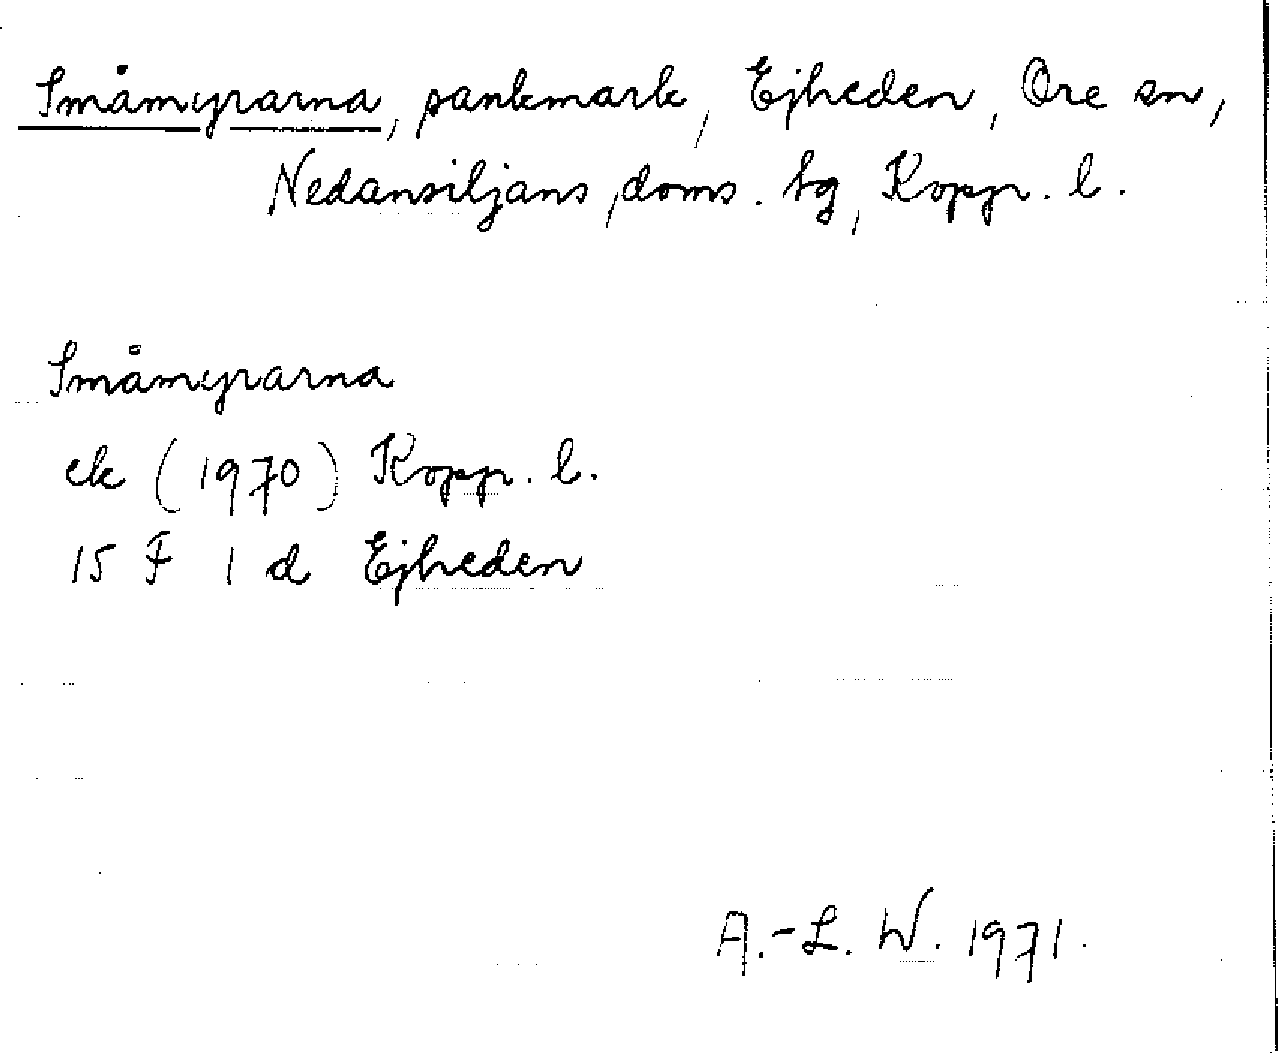 Småmyrarna, sankmark, Ejheden, Ore sn,
Nedansiljans doms. tg, Kopp. l.
Småmyrarna
ek (1970) Kopp. l.
15 F 1 d Ejheden
A.-L. W. 1971.